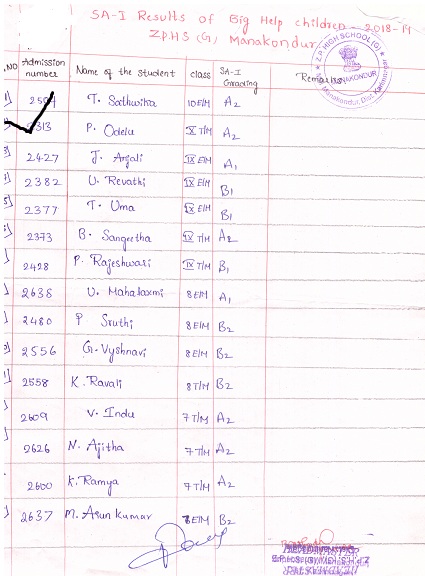 SA-I Results of Big Help children - 2018-19
Z.P.HS (G), Manakondur
Z.P HIGH SCHOOL (G)
MANAKONDUR
.NO Admission number Name of the student class SA-I Grading Remarks
1) 2594 T. Sathwika 10 E/M A2
2313 P. Odelu X T/M A2
2427 J. Anjali IX E/M A1
2382 U. Revathi IX E/M B1
2377 T. Uma IX E/M B1
2373 B. Sangeetha IX T/M A2
2428 P. Rajeshwari IX T/M B1
2638 U. Mahalaxmi 8 E/M A1
2480 P Sruthi 8 E/M B2
2556 G. Vyshnavi 8 E/M B2
2558 K. Ravali 8 T/M B2
2609 V. Indu 7 T/M A2
2626 N. Ajitha 7 T/M A2
2600 K. Ramya 7 T/M A2
2637 M. Arun Kumar 8 E/M B2